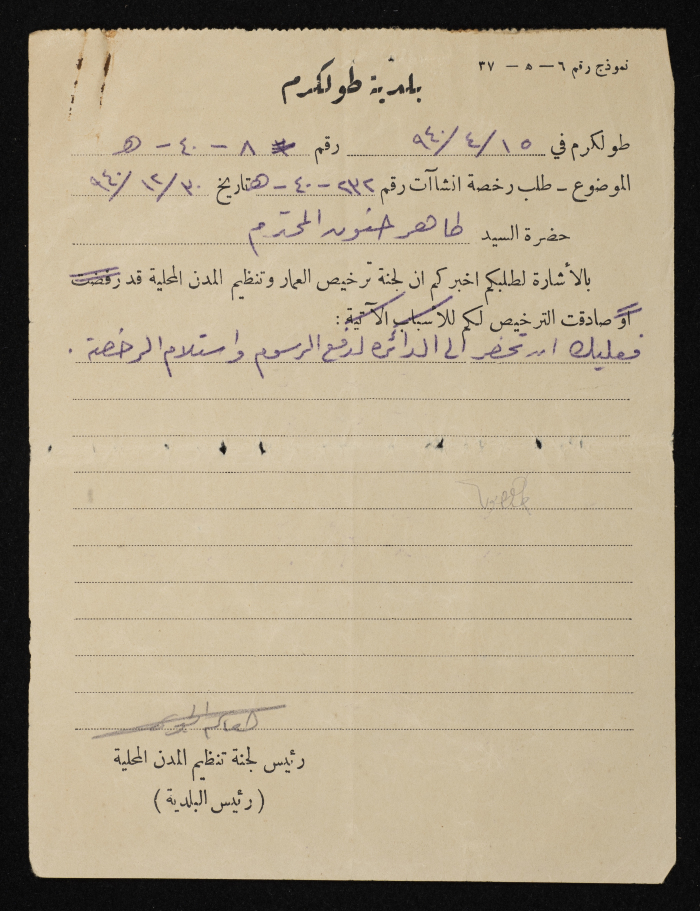 نموذج رقم ٦ — ٥ — ٣٧
بلدية طولكرم
طولكرم في ١٥/٤/٩٤٠ رقم ٨ - ٤٠ - ھ
الموضوع ـ طلب رخصة انشاآت رقم ٢٣٢ - ٤٠ - ھ تاريخ ٣٠/١٢/٩٤٠
حضرة السيد طاهر حنون المحترم
بالأشارة لطلبكم اخبركم ان لجنة ترخيص العمار وتنظيم المدن المحلية قد رفضت
او صادقت الترخيص لكم للأسباب الآتية :
فعليك ان تحضر الى الدائرة لدفع الرسوم واستلام الرخصة .
رئيس لجنة تنظيم المدن المحلية
( رئيس البلدية )